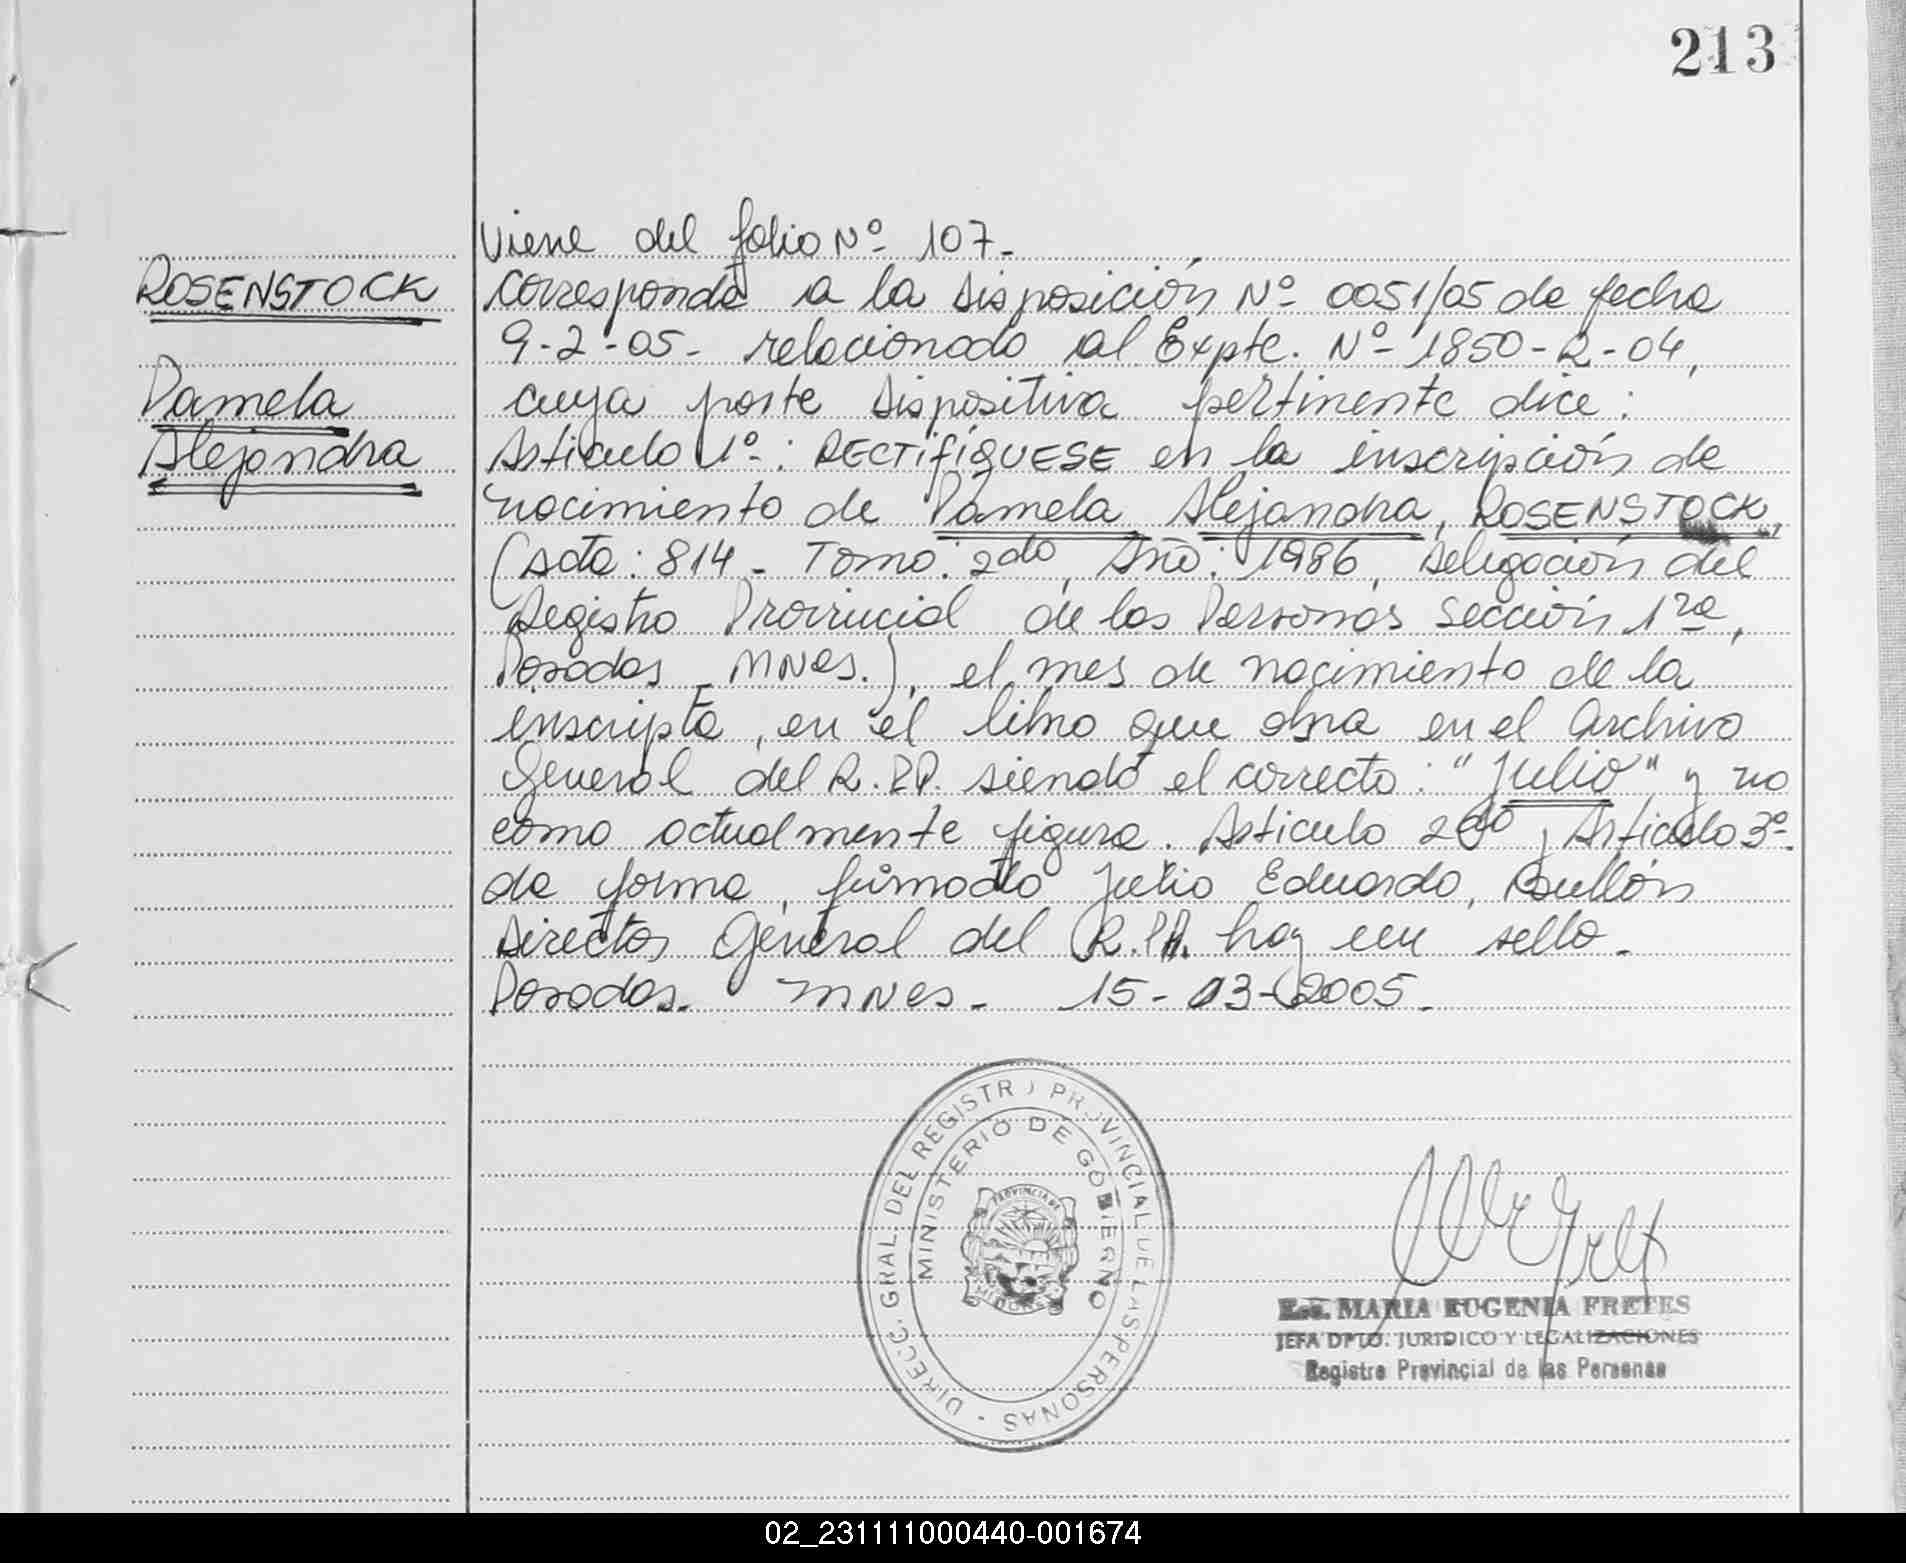 213
Viene del folio Nº 107-
ROSENSTOCK
Corresponde a la disposición Nº 0051/05 de fecha
9-2-05- relacionado al Expte. Nº 1850-R-04,
Pamela
cuya parte dispositiva pertinente dice:
Alejandra
Artículo 1º: RECTIFÍQUESE en la inscripción de
nacimiento de Pamela Alejandra, ROSENSTOCK,
(Acta: 814- Tomo: 2do, Año: 1986, Delegación del
Registro Provincial de las Personas Sección 1ra,
Posadas MNES.), el mes de nacimiento de la
inscripta, en el libro que obra en el Archivo
General del R.PP. siendo el correcto: "Julio" y no
como actualmente figura. Artículo 2do y Artículo 3º-
de forma, firmado Julio Eduardo, Bullón
Director General del R.PP. hay un sello-
Posadas- MNES- 15-03-2005-
DIRECC. GRAL. DEL REGISTRO PROVINCIAL DE LAS PERSONAS -
MINISTERIO DE GOBIERNO
PROVINCIA DE
MISIONES
Esc. MARIA EUGENIA FRETES
JEFA DPTO. JURIDICO Y LEGALIZACIONES
Registro Provincial de las Personas
02_231111000440-001674